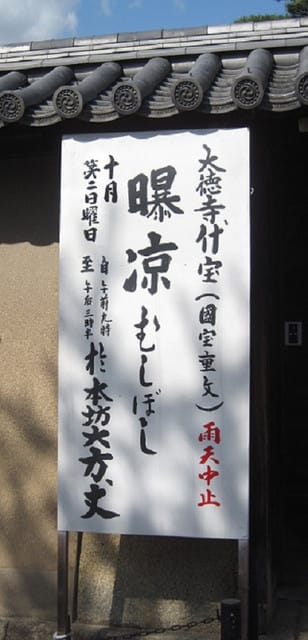 大徳寺什宝（國宝重文）雨天中止
曝凉むしぼし
十月
第二日曜日
自午前九時
至午后三時半
於本坊大方丈